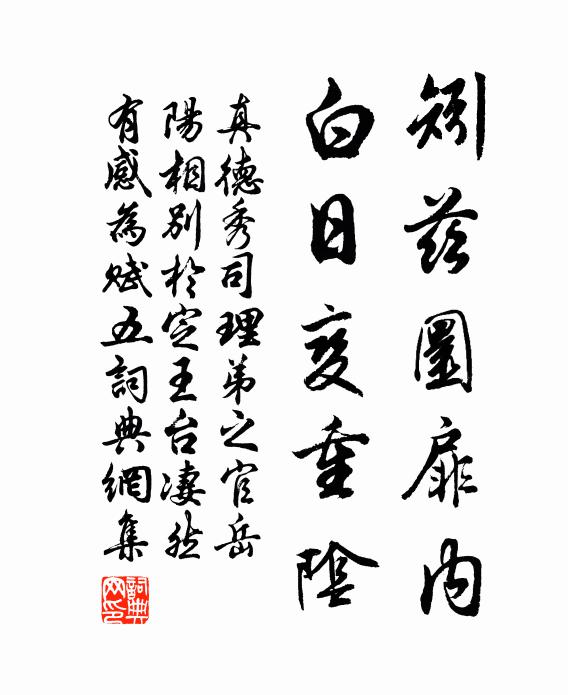 矧茲圜扉内
白日变重陰
真德秀司理弟之官岳
陽相別於定王台淒然
有感為赋五詞典網集
詞典網印